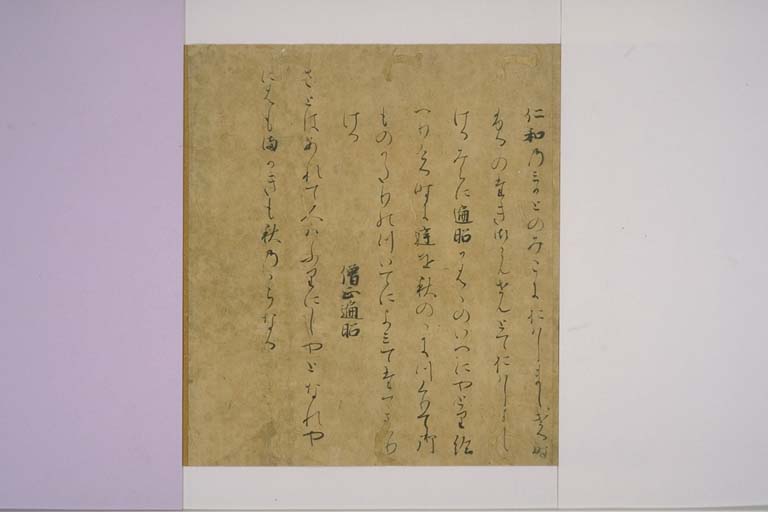 仁和のみかとのみこにおはしましける時
ふるのたきこらんせんとておはしまし
けるみちに遍昭かはゝのいへにやとり給
へりける時に庭を秋のゝにつくりて御
ものかたりのついてによみてたてまつり
ける
僧正遍昭
さとはあれて人はふりにしやとなれや
にはもまかきも秋のゝらなる